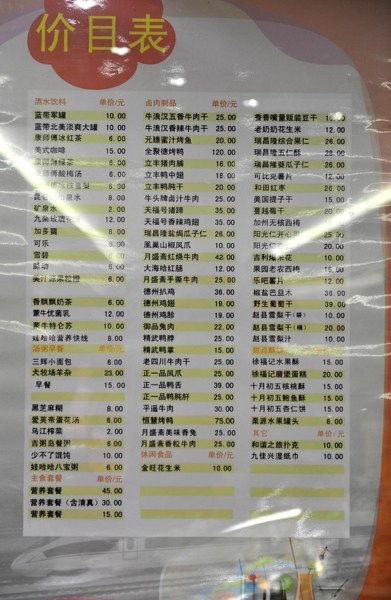 价目表
酒水饮料 单价/元
蓝带军罐 10.00
蓝带北美淡爽大罐 10.00
康师傅冰红茶 6.00
美式咖啡 15.00
康师傅绿茶 6.00
康师傅酸梅汤 6.00
康师傅冰糖雪梨 6.00
昆仑山山泉水 8.00
矿泉水 2.00
九朵玫瑰花
加多宝 8.00
可乐 6.00
雪碧 6.00
脉动 6.00
美汁源果粒橙 6.00
香飘飘奶茶 6.00
蒙牛优菌乳 12.00
蒙牛特仑苏 10.00
娃哈哈营养快线 8.00
汤粥早餐 单价/元
三辉小面包 6.00
犬牧场羊杂 23.00
早餐 15.00
黑芝麻糊 8.00
爱芙蒂蛋花汤 6.00
乌江榨菜 2.00
吉粥岛餐粥 6.00
少不了馄饨 10.00
娃哈哈八宝粥 6.00
主食套餐 单价/元
营养套餐 45.00
营养套餐（含清真） 30.00
营养套餐 15.00
卤肉制品 单价/元
牛浪汉五香牛肉干 25.00
牛浪汉香辣牛肉干 25.00
元臻蜜汁烤鱼 20.00
全聚德烤鸭 120.00
立丰猪肉脯 16.00
立丰鸭中翅 18.00
立丰鸭肫干 20.00
牛头牌卤汁牛肉 25.00
天福号猪蹄 35.00
天福号香辣鸡翅 35.00
瑞昌隆盐焗瓜子仁 26.00
凰巢山椒凤爪 10.00
月盛斋红烧牛肉 42.00
大海哈红肠 12.00
月盛斋手撕牛肉 25.00
德州扒鸡 36.00
德州鸡翅 19.00
德州鸡胗 19.00
御品兔肉 22.00
精武鸭脖 25.00
精武鸭掌 15.00
老四川牛肉干 25.00
正一品凤爪 25.00
正一品鸭舌 39.00
正一品鸭肫肝 25.00
平遥牛肉 30.00
恒慧烤鸭 75.00
月盛斋美味香兔 25.00
月盛斋香粒牛肉 25.00
休闲食品 单价/元
金旺花生米 10.00
香香嘴量贩装豆干 10.00
老奶奶花生米 12.00
瑞昌隆综合果仁 26.00
瑞昌隆五仁酥 28.00
瑞昌隆瓜子仁 26.00
可比克薯片 12.00
和田红枣 26.00
美国提子干 15.00
蔓越莓干 20.00
加州无核西梅
阳光仁开心果
阳光仁 20.00
吉利爆米花 10.00
果园老农西梅 16.00
乐吧薯片 12.00
椒盐巴旦木 36.00
野生葡萄干 39.00
赵县梨汁干（袋） 20.00
赵县梨汁干（桶） 20.00
徐福记水果酥 15.00
徐福记磨堡蛋糕 20.00
十月初五核桃酥 15.00
十月初五鲍鱼酥 15.00
十月初五杏仁饼 15.00
栗源水果罐头 8.00
其它 单价/元
和谐之旅扑克 10.00
九佳兴湿纸巾 5.00